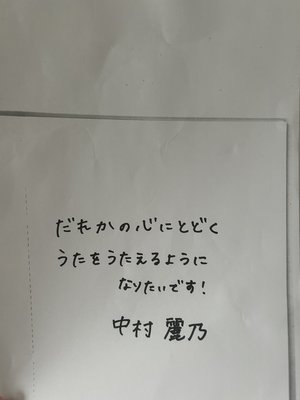 だれかの心にとどく
うたをうたえるように
なりたいです!
中村 麗乃